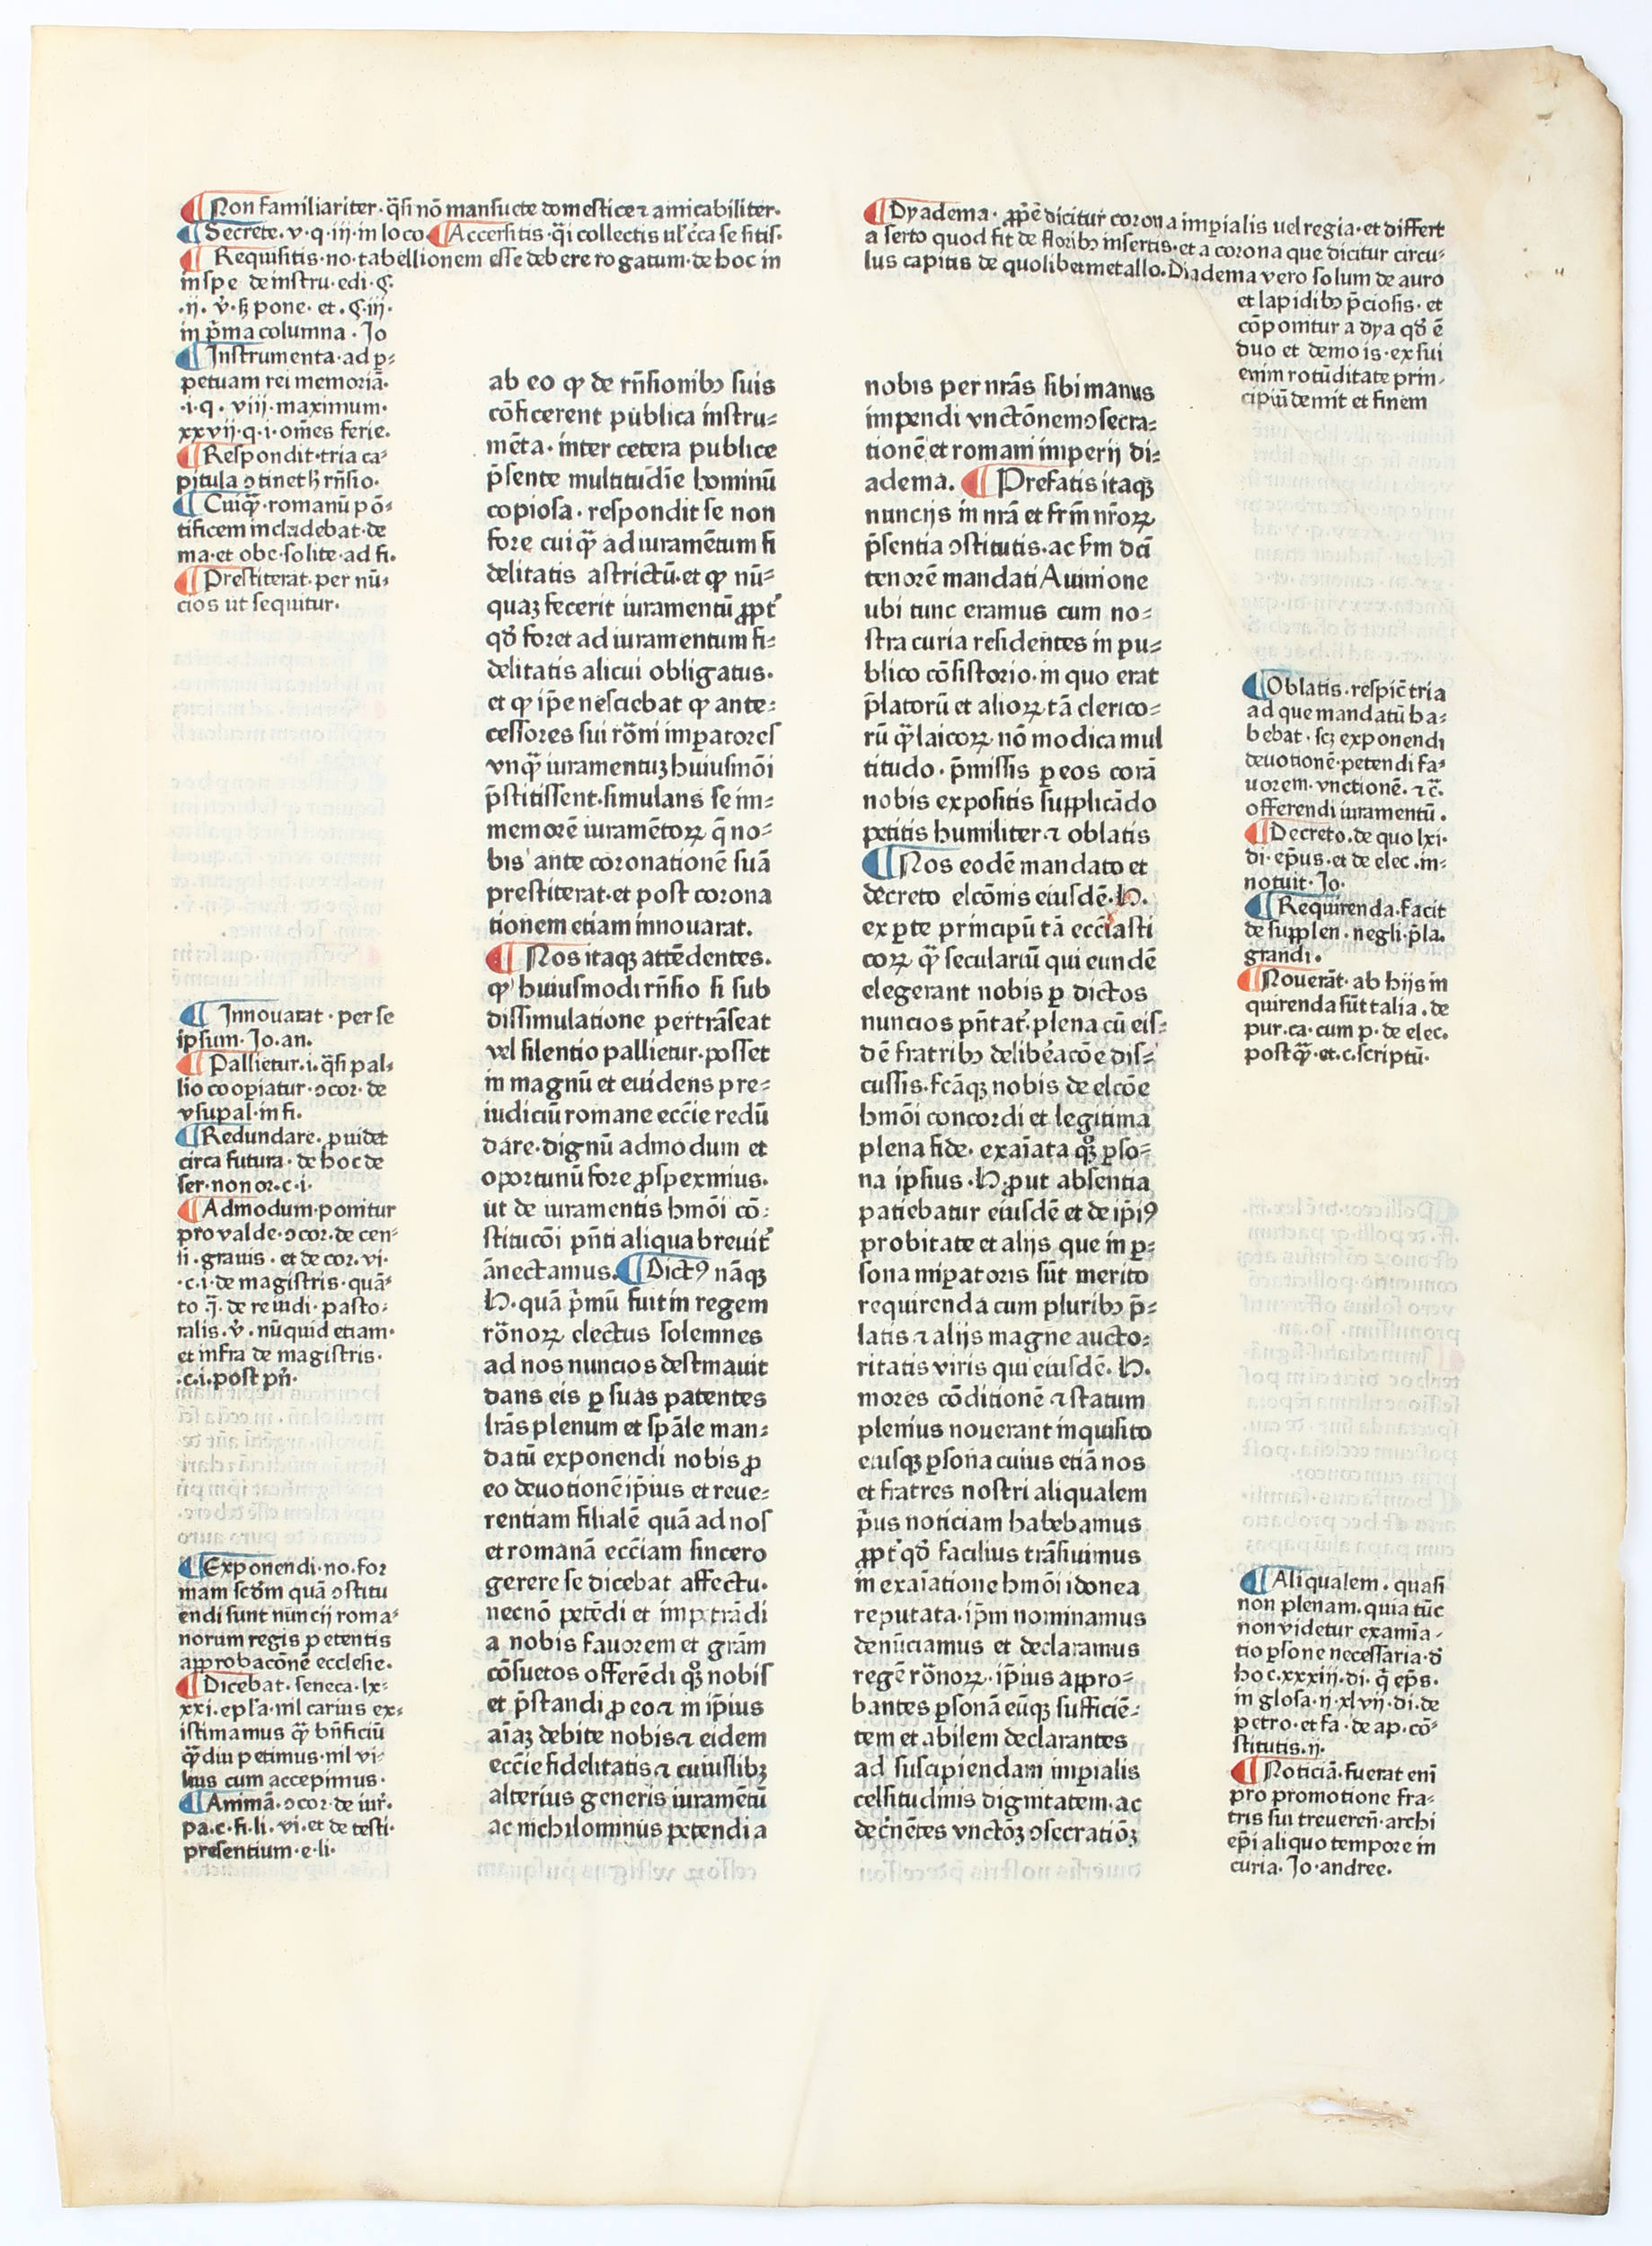 ¶ Non familiariter· q̄si nō mansuete domestice ⁊ amicabiliter·
¶ Secrete· v· q· iij· in loco ¶ Accersitis· q̄i collectis ul' c̄ca se sitis·
¶ Requisitis· no· tabellionem esse debere rogatum· de hoc in
in spe de instru· edi· §·
·ij· v̓· ꝶ pone· et· §· iij·
in p̄ma columna· Jo
¶ Instrumenta· ad ꝑ⸗
petuam rei memoriā·
·i· q· viij· maximum·
xxvij· q· i· om̄es ferie·
¶ Respondit· tria ca⸗
pitula ↄtinet ħ rn̄sio·
¶ Cuiq̄ꝫ· romanū pō⸗
tificem includebat· de
ma· et obe· solite· ad fi·
¶ Prestiterat· per nū⸗
cios ut sequitur·
¶ Innouarat· per se
ipsum· Jo· an·
¶ Pallietur· i· q̄si pal⸗
lio cooꝑiatur· ↄcor· de
vsupal· in fi·
¶ Redundare· ꝓuidet
circa futura· de hoc de
ser· non or· c· i·
¶ Admodum· ponitur
pro valde· ↄcor· de cen⸗
si· grauis· et de cor· vi·
·c· i· de magistris· quā⸗
to q̄· de reiudi· pasto⸗
ralis· v̓· nūquid etiam·
et infra de magistris·
·c· i· post pn̄·
¶ Exponendi· no· for
mam scd̄m quā ↄstitu
endi sunt nūncij roma⸗
norum regis petentis
approbacōnē ecclesie·
¶ Dicebat· seneca· lx⸗
xxi· ep̄la· nil carius ex⸗
istimamus q̄ꝫ bn̄ficiū
q̄ꝫdiu petimus· nil vi⸗
lius cum accepimus·
¶ Animā· ↄcor· de iur̄·
pa· c· fi· li· vi· et de testi·
presentium· e· li·
ab eo ꝙ de rn̄sionibꝫ suis
cōficerent publica instru⸗
mēta· inter cetera publice
p̄sente multitudīe hominū
copiosa· respondit se non
fore cuiq̄ꝫ ad iuramētum fi
delitatis astrictū· et ꝙ nū⸗
quaꝫ fecerit iuramentū ꝓpt̓
qđ foret ad iuramentum fi⸗
delitatis alicui obligatus·
et ꝙ ip̄e nesciebat ꝙ ante⸗
cessores sui rōm̄ imꝑatores
vnq̄ꝫ iuramentuꝫ huiusmōi
p̄stitissent· simulans se im⸗
memorē iuramētoꝝ q̄ no⸗
bis ante coronationē suā
prestiterat· et post corona
tionem etiam innouarat·
¶ Nos itaqꝫ attēdentes·
ꝙ huiusmodi rn̄sio si sub
dissimulatione pertrāseat
vel silentio pallietur· posset
in magnū et euidens pre⸗
iudiciū romane eccīe redū
dare· dignū admodum et
oportunū fore ꝓspeximus·
ut de iuramentis hmōi cō⸗
stitucōi pn̄ti aliqua breuit̓
ānectamus· ¶ Dictꝰ nāqꝫ
H· quā p̄mū fuit in regem
rōnoꝝ electus solemnes
ad nos nuncios destinauit
dans eis ꝑ suas patentes
lrās plenum et sp̄āle man⸗
datū exponendi nobis ꝓ
eo deuotionē ip̄ius et reue⸗
rentiam filialē quā ad nos
et romanā eccīam sincero
gerere se dicebat affectu·
necnō petēdi et impetrādi
a nobis fauorem et grām
cōsuetos offerēdi q̊qꝫ nobis
et p̄standi ꝓ eo ⁊ in ip̄ius
aīaꝫ debite nobis ⁊ eidem
eccīe fidelitatis ⁊ cuiuslibꝫ
alterius generis iuramētū
ac nichilominus petendi a
¶ Dyadema· ꝓpe dicitur corona imꝑialis uel regia· et differt
a serto quod fit de floribꝫ insertis· et a corona que dicitur circu⸗
lus capitis de quolibet metallo· Diadema vero solum de auro
et lapidibꝫ p̄ciosis· et
cōponitur a dya qđ ē
duo et demo is· ex sui
enim rotūditate prin⸗
cipiū demit et finem
nobis per nrās sibi manus
impendi vnctōnem ↄsecra⸗
tionē et romani imperij di⸗
adema· ¶ Prefatis itaqꝫ
nuncijs in nrā et frm̄ nr̄oꝝ
p̄sentia ↄstitutis· ac sm̄ dcī
tenorē mandati Auinione
ubi tunc eramus cum no⸗
stra curia residentes in pu⸗
blico cōsistorio· in quo erat
p̄latorū et alioꝝ tā clerico⸗
rū q̄ꝫ laicoꝝ nō modica mul
titudo· p̄missis ꝑ eos corā
nobis expositis supplicādo
petitis humiliter ⁊ oblatis
¶ Nos eodē mandato et
decreto elcōnis eiusdē· H·
ex ꝑte principū tā ecclīasti
coꝝ q̄ꝫ seculariū qui eundē
elegerant nobis ꝑ dictos
nuncios pn̄tat̓· plena cū eis⸗
dē fratribꝫ delib̓acōe dis⸗
cussis· fc̄āqꝫ nobis de elcōe
hmōi concordi et legitima
plena fide· exaīata q̊qꝫ ꝑso⸗
na ipsius· H· ꝓut absentia
patiebatur eiusdē et de ip̄iꝰ
probitate et alijs que in ꝑ⸗
sona imꝑatoris sūt merito
requirenda cum pluribꝫ p̄⸗
latis ⁊ alijs magne aucto⸗
ritatis viris qui eiusdē· H·
mores cōditionē ⁊ statum
plenius nouerant inquisito
eiusqꝫ ꝑsona cuius etiā nos
et fratres nostri aliqualem
p̄us noticiam habebamus
ꝓpt̓ qđ facilius trāsiuimus
in exaīatione hmōi idonea
reputata· ip̄m nominamus
denūciamus et declaramus
regē rōnoꝝ· ip̄ius appro⸗
bantes ꝑsonā eūqꝫ sufficiē⸗
tem et abilem declarantes
ad suscipiendam imꝑialis
celsitudinis dignitatem· ac
dec̓nētes vnctōꝫ ↄsecratiōꝫ
¶ Oblatis· respic̄ tria
ad que mandatū ha⸗
bebat· scꝫ exponendi
deuotionē· petendi fa⸗
uorem· vnctionē· ⁊ c̄·
offerendi iuramentū·
¶ Decreto· de quo lxi·
di· ep̄us· et de elec· in⸗
notuit· Jo·
¶ Requirenda· facit
de supplen· negli· p̄la·
grandi·
¶ Nouerāt· ab hijs in
quirenda sūt talia· de
pur· ca· cum p· de elec·
postq̄ꝫ· et· c· scriptū·
¶ Aliqualem· quasi
non plenam· quia tūc
non videtur examīa⸗
tio ꝑsone necessaria· đ
hoc· xxxiij· di· q̄ ep̄s·
in glosa· ij· xlvij· di· de
petro· et fa· de ap· cō⸗
stitutis· ij·
¶ Noticiā· fuerat enī
pro promotione fra⸗
tris sui treueren̄· archi
ep̄i aliquo tempore in
curia· Jo· andree·